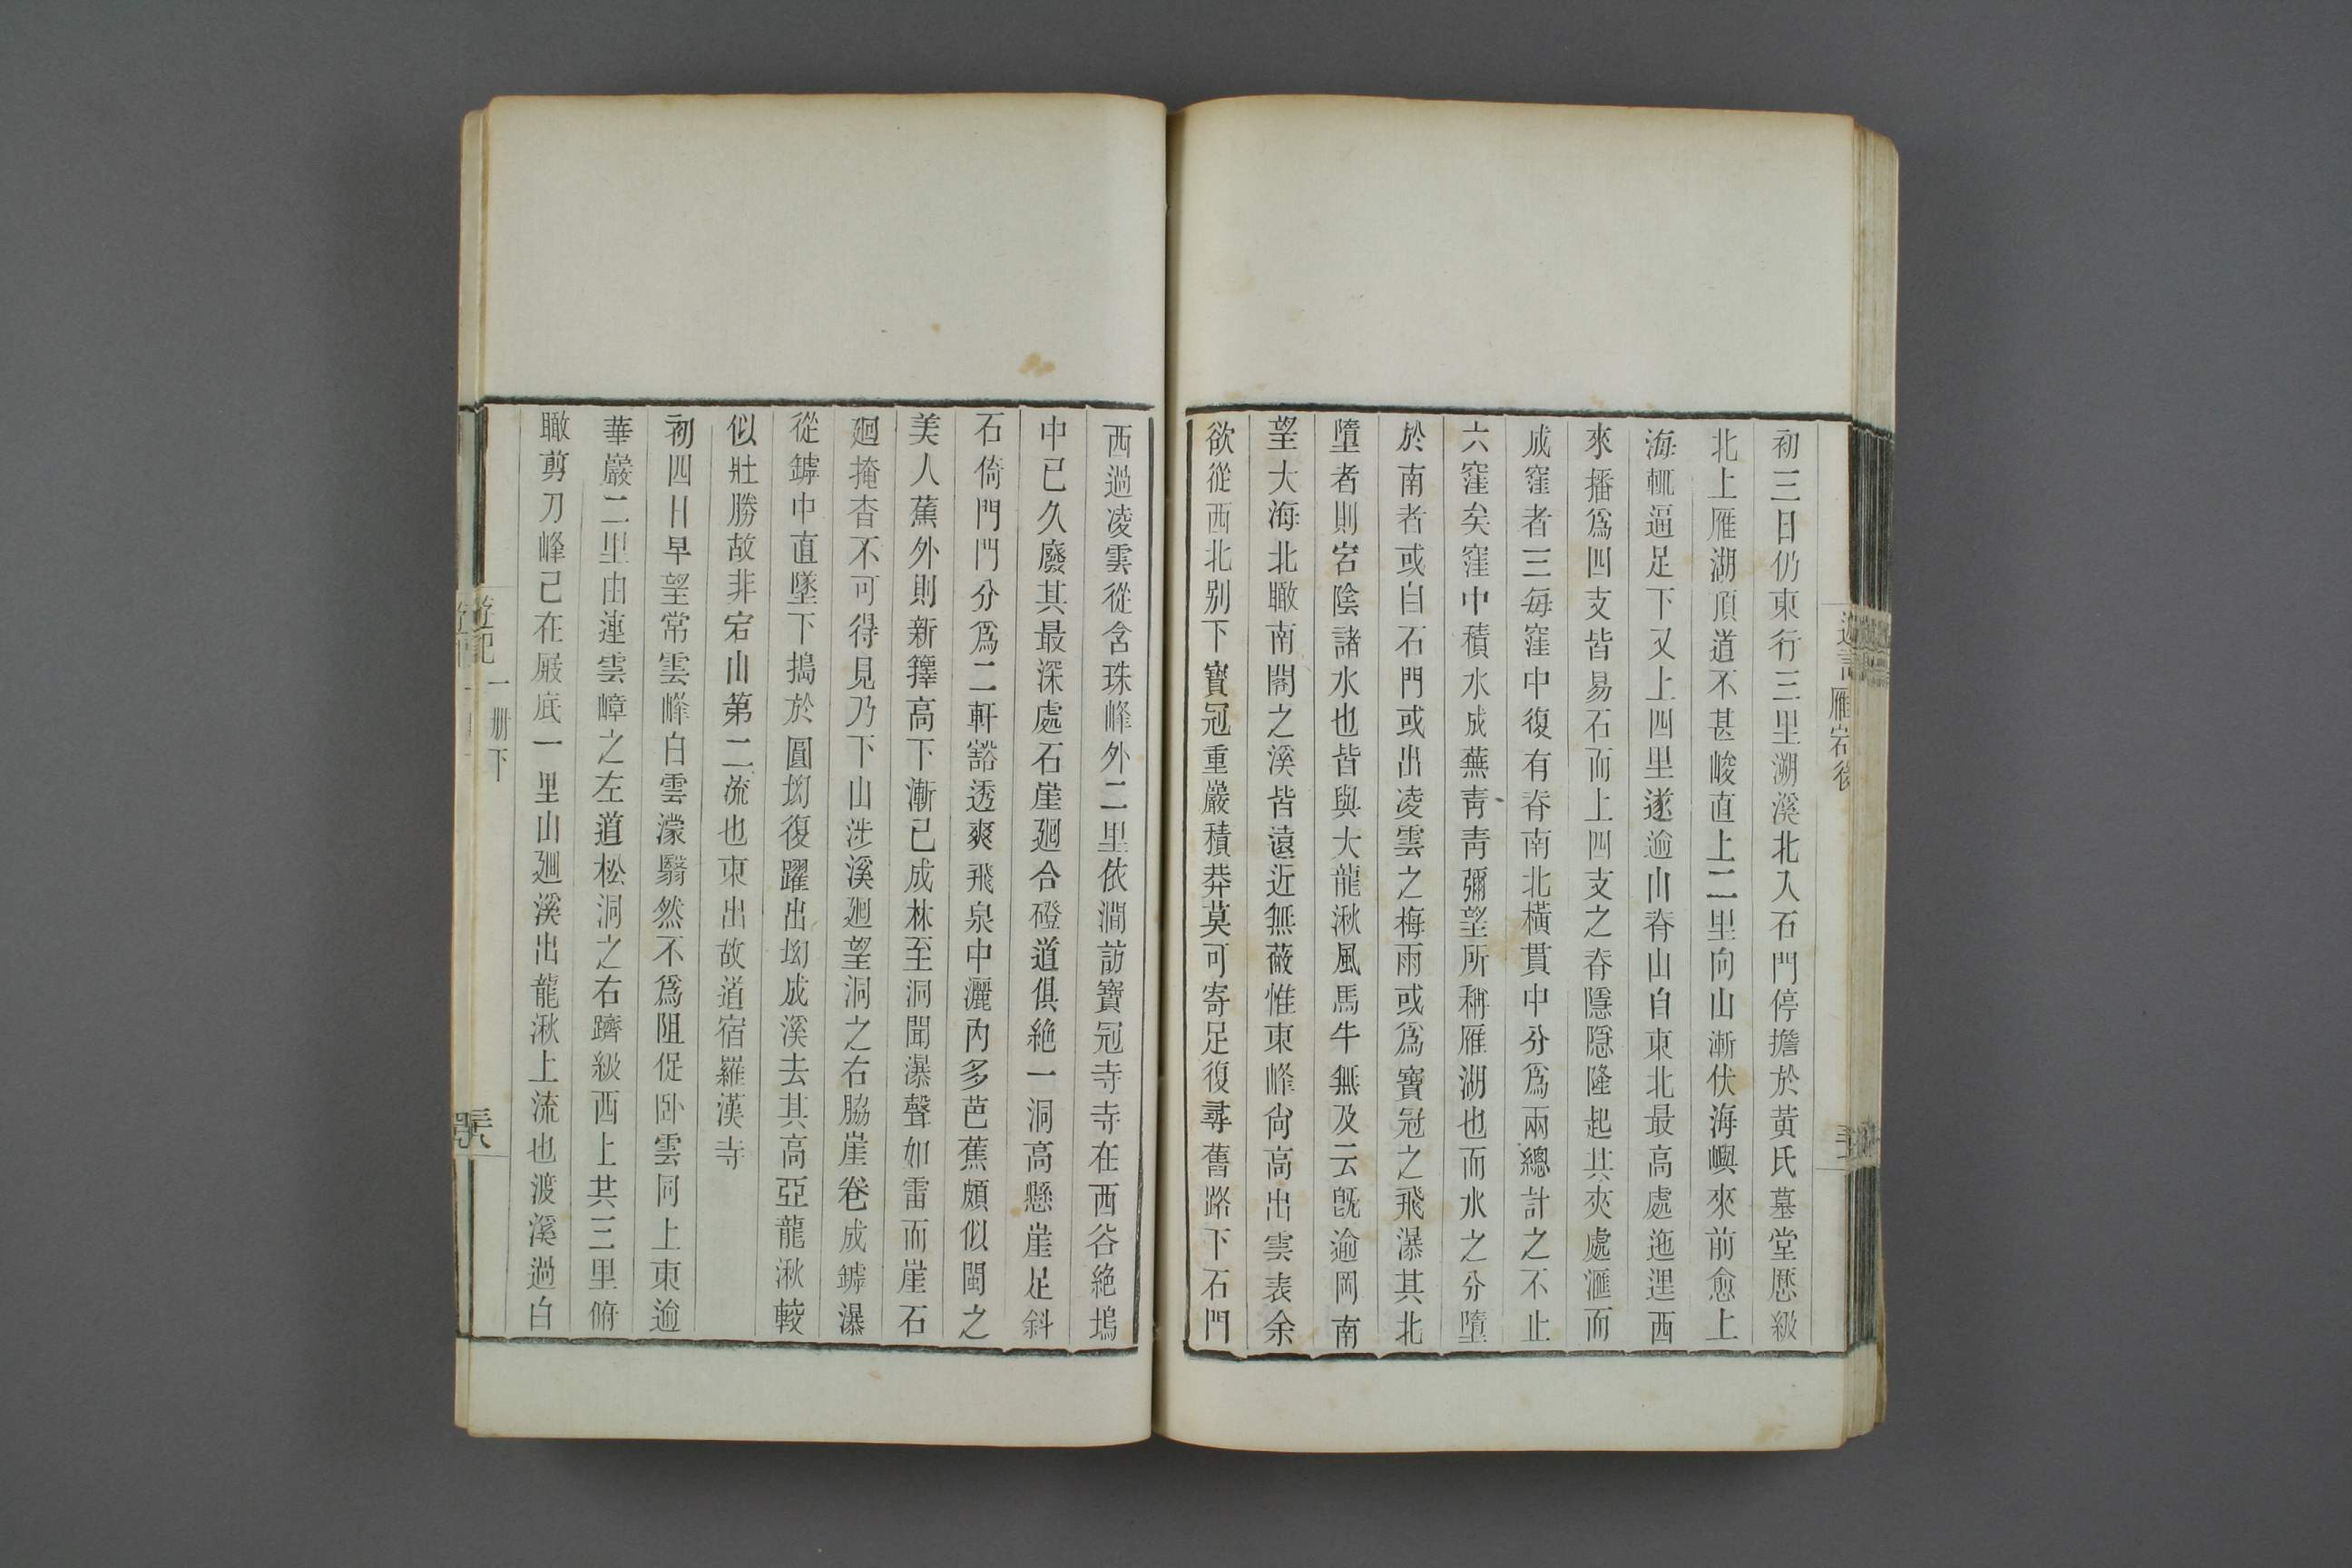 初三日仍東行三里溯溪北入石門停擔於黃氏墓堂歷級
北上雁湖頂道不甚峻直上二里向山漸伏海嶼來前愈上
海輒逼足下又上四里遂逾山脊山自東北最高處迤邐西
來播爲四支皆易石而上四支之脊隱隱隆起其夾處滙而
成窪者三每窪中復有脊南北橫貫中分爲兩總計之不止
六窪矣窪中積水成蕪青青彌望所稱雁湖也而水之分墮
於南者或自石門或出凌雲之梅雨或爲寶冠之飛瀑其北
墮者則宕陰諸水也皆與大龍湫風馬牛無及云旣逾岡南
望大海北瞰南閣之溪皆遠近無蔽惟東峰尙高出雲表余
欲從西北别下寶冠重巖積莽莫可寄足復尋舊路下石門
西過凌雲從含珠峰外二里依澗訪寶冠寺寺在西谷絶塢
中已久廢其最深處石崖廻合磴道俱絶一洞高懸崖足斜
石倚門門分爲二軒豁透爽飛泉中灑內多芭蕉頗似閩之
美人蕉外則新籜高下漸已成林至洞聞瀑聲如雷而崖石
廻掩杳不可得見乃下山涉溪廻望洞之右脇崖卷成罅瀑
從罅中直墜下搗於圓坳復躍出坳成溪去其高亞龍湫較
似壯勝故非宕山第二流也東出故道宿羅漢寺
初四日早望常雲峰白雲濛翳然不爲阻促卧雲同上東逾
華巖二里由連雲嶂之左道松洞之右躋級西上共三里俯
瞰剪刀峰已在屐底一里山廻溪出龍湫上流也渡溪過白
遊記 一册下